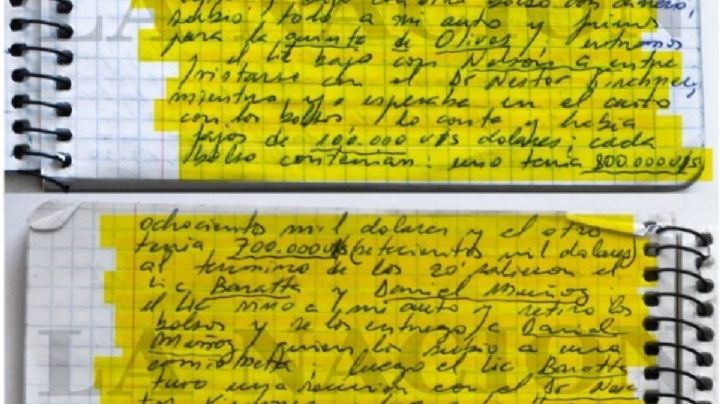 subio todo a mi auto y fuimos
para la quinta de Olivos, entramos
y el Lic bajo con Nelson, a entre
vistarse con el Dr Nestor Kirchner,
mientras yo esperaba en el auto
con los bolsos, lo conte y habia
fajos de 100.000 U$S dolares; cada
bolso contenian: uno tenia 800.000 U$S
ochociento mil dolares y el otro
tenia 700.000 U$S (setecientos mil dolares)
al termino de los 20' salieron el
Lic Baratta y Daniel Muñoz
el Lic vino a mi auto y retiro los
bolsos y se los entrego a Daniel
Muñoz, quien los subio a una
camioneta; luego el Lic Baratta
tuvo una reunion con el Dr Nes
LA NACION